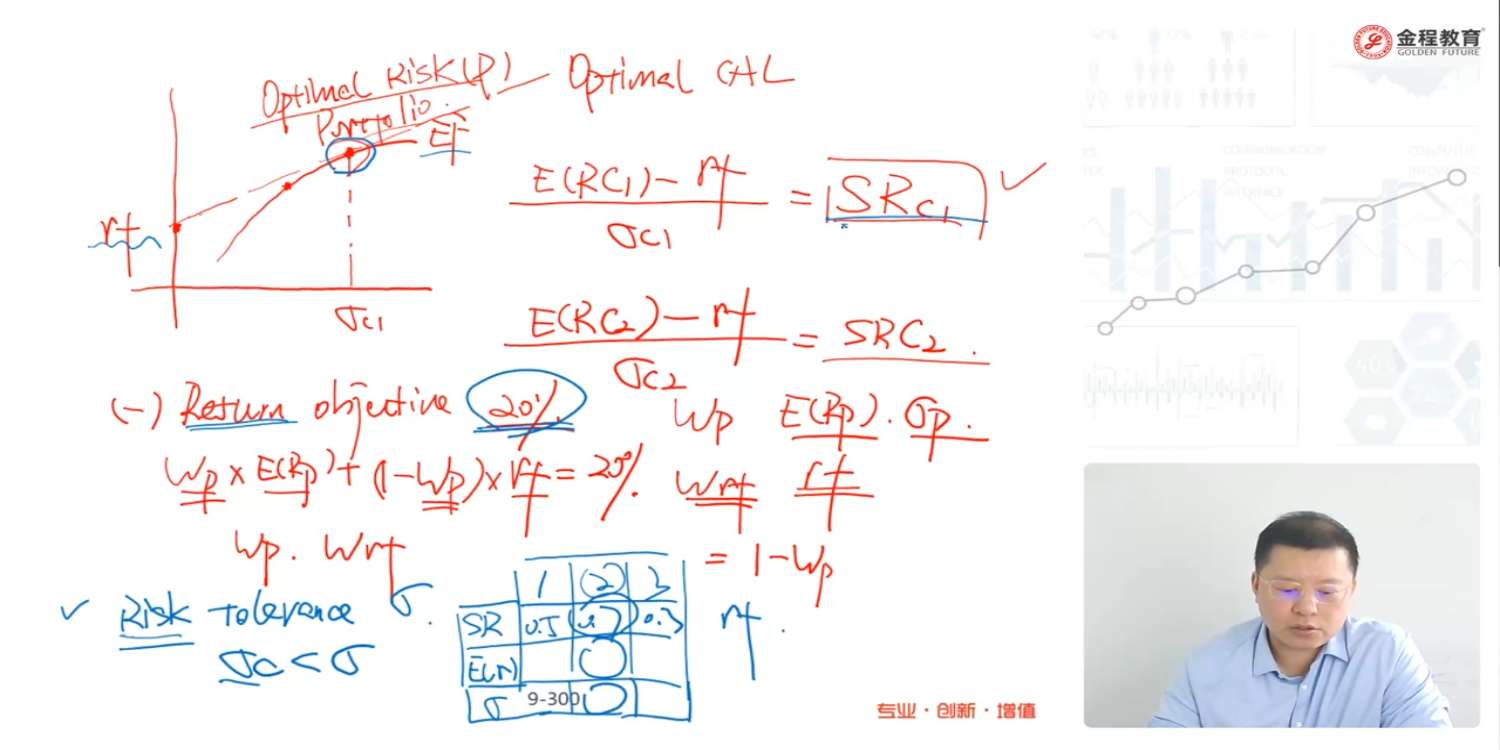 金程教育
GOLDEN FUTURE
Optimal Risk(P) Optimal CAL
Portfolio
EF
rf
σc1
E(RC1) - rf
σc1
= SRC1 ✓
E(RC2) - rf
σc2
= SRC2.
(一) Return objective 20%
Wp × E(Rp) + (1-Wp) × rf = 20%.
Wp E(Rp). σp.
Wrf rf
Wp. Wrf
= 1-Wp
✓ Risk tolerance σ.
σc < σ
1 (2) 3
SR 0.5 0.3
E(r)
σ
rf.
9-300
专业·创新·增值